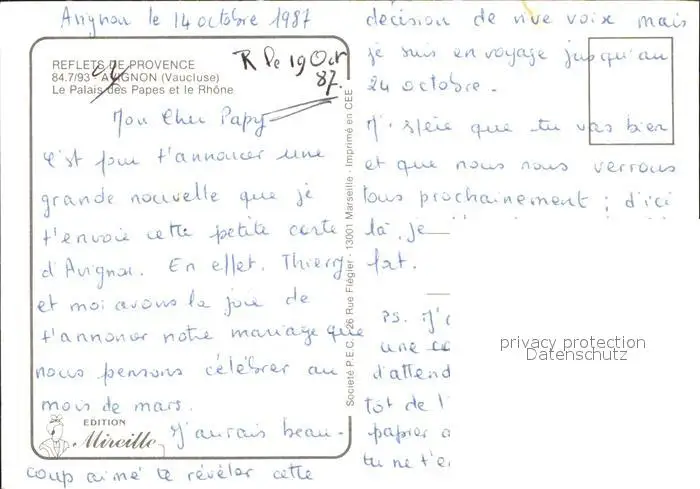 Avignon le 14 octobre 1987
REFLETS DE PROVENCE
84.7/93 - AVIGNON (Vaucluse)
Le Palais des Papes et le Rhône
R le 19 Oct
87.
Mon Cher Papy
C'est pour t'annoncer une
grande nouvelle que je
t'envoie cette petite carte
d'Avignon. En effet, Thierry
et moi avons la joie de
t'annoncer notre mariage que
nous pensons célébrer au
mois de mars.
EDITION
Mireille
J'aurais beau-
coup aimé te révéler cette
Société P.E.C. - 26 Rue Flégier - 13001 Marseille - Imprimé en CEE
décision de vive voix mais
je suis en voyage jusqu'au
24 octobre.
J'espère que tu vas bien
et que nous nous verrons
tous prochainement ; d'ici
là, je
fort.
PS. J'
une
d'attend
tôt de l'
papier
tu ne t'e
privacy protection
Datenschutz